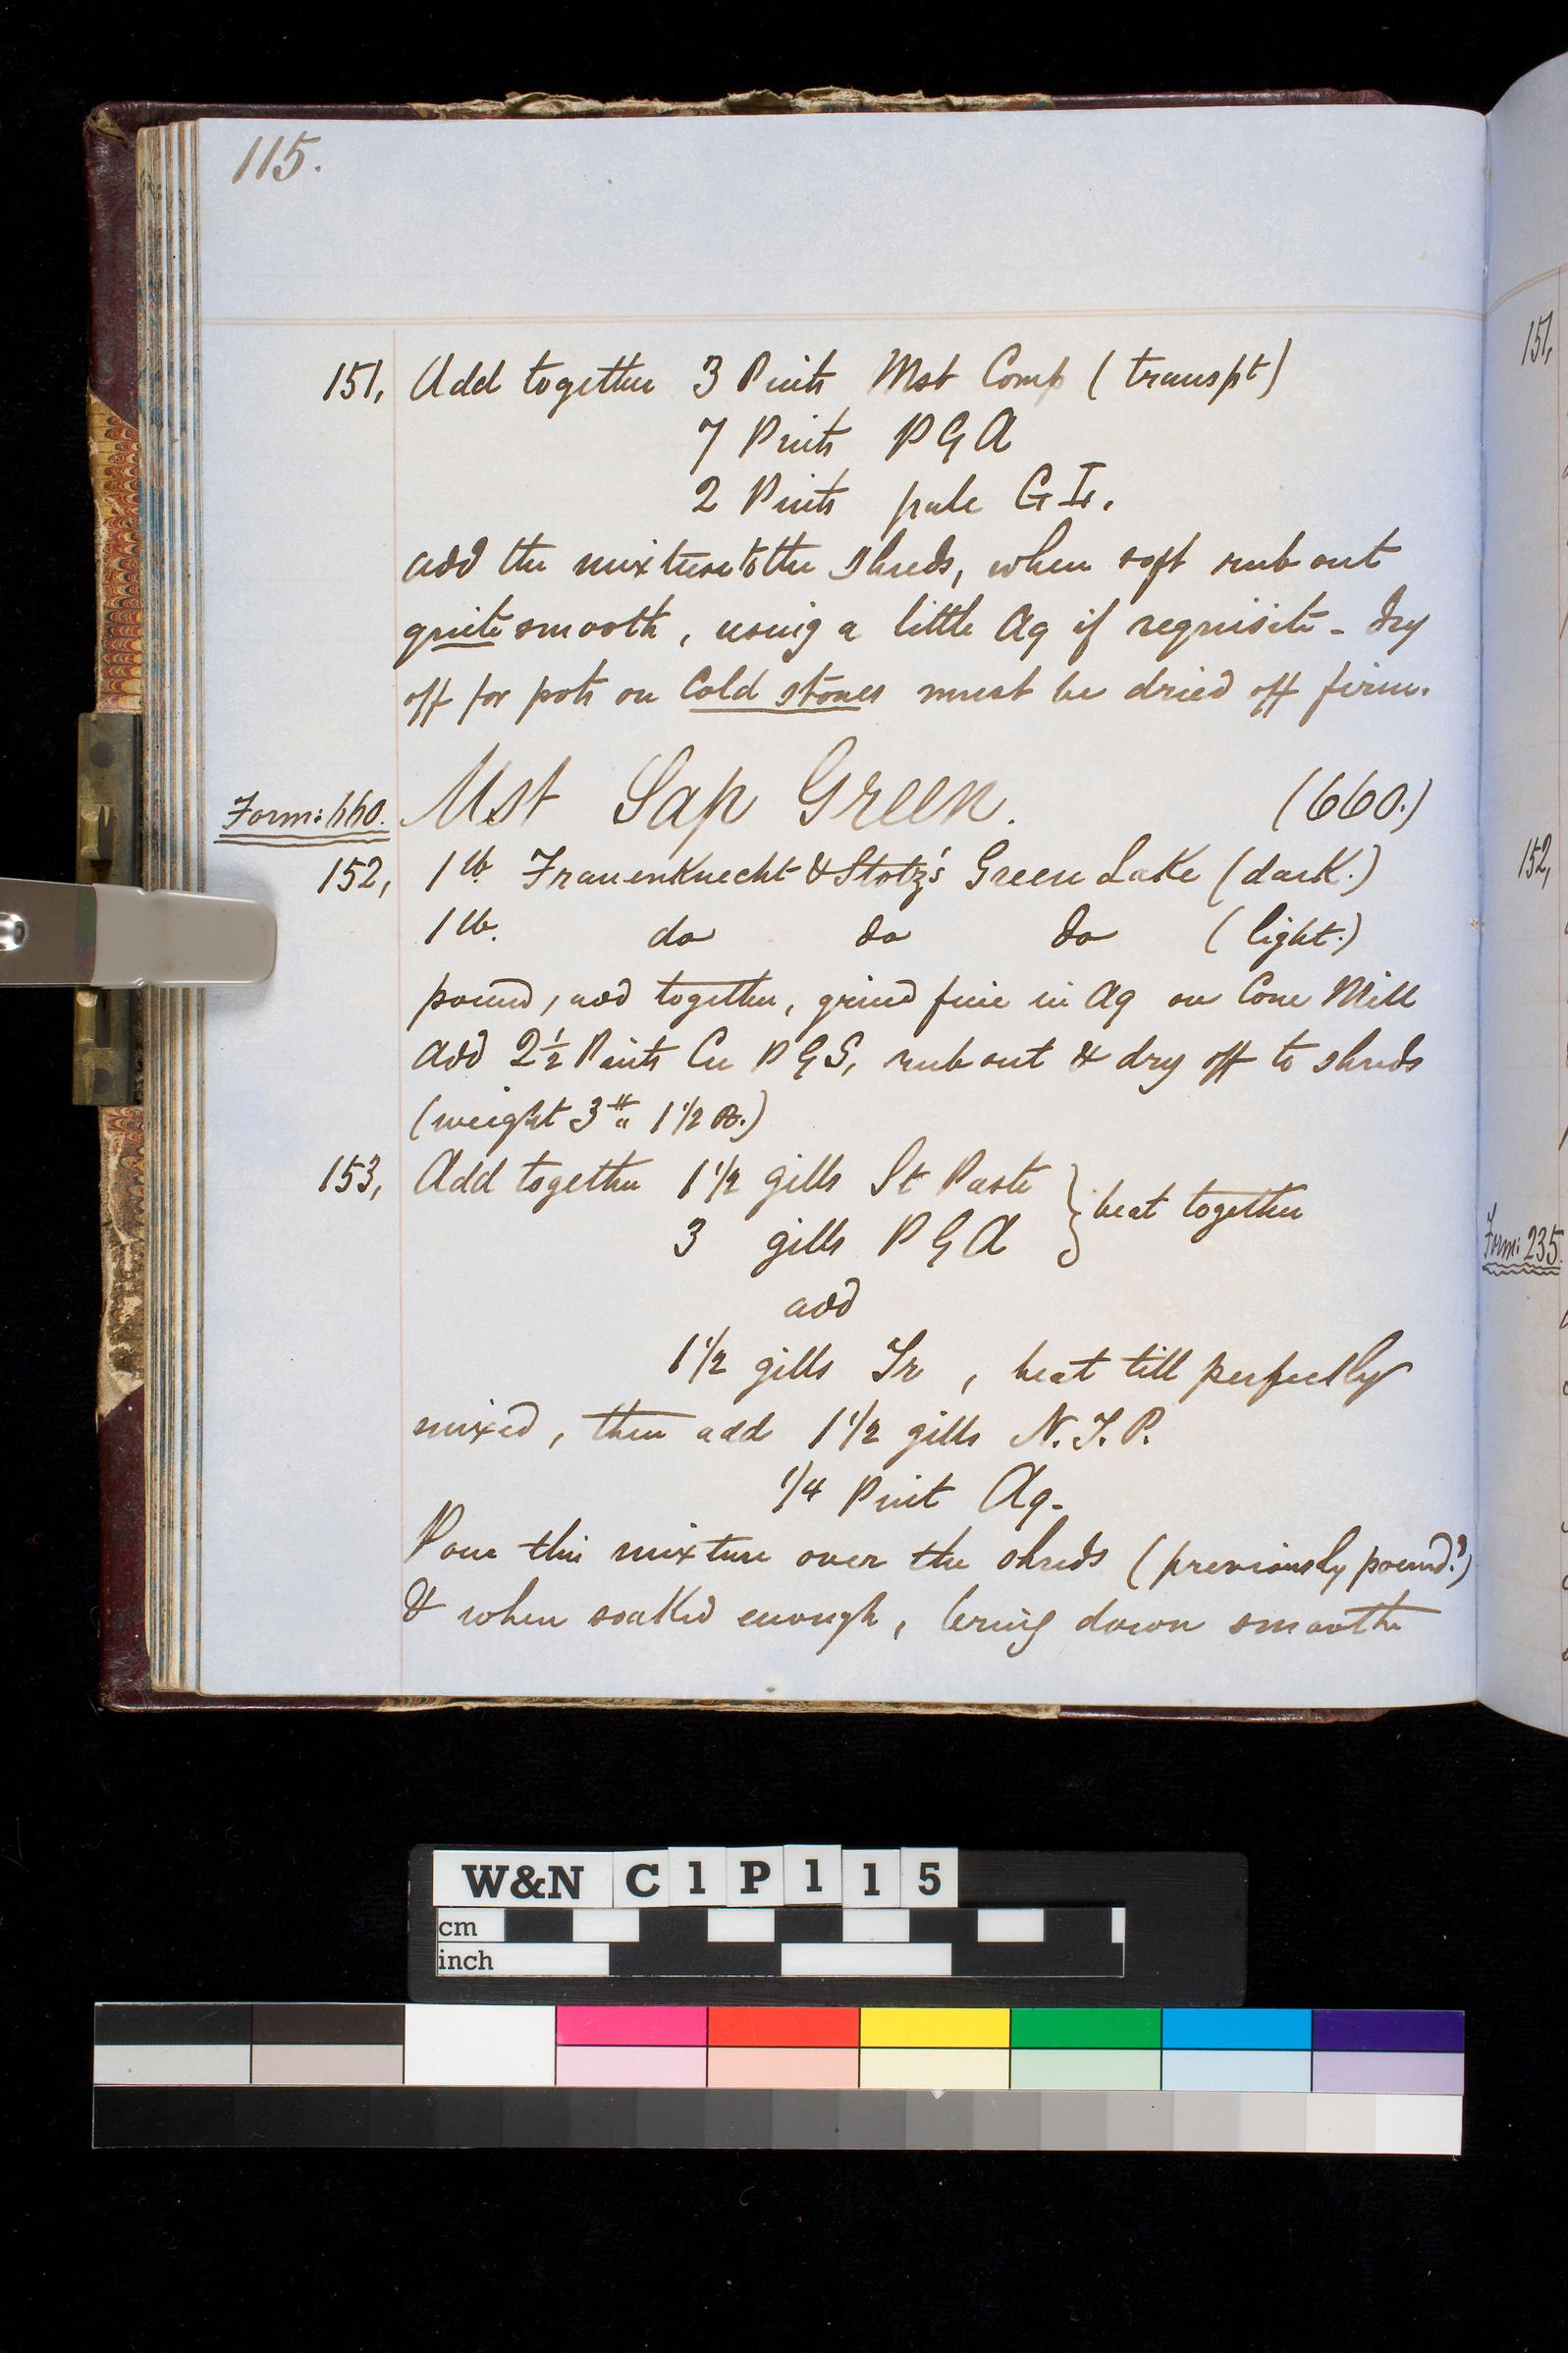 115.
151, Add together 3 Pints Mst Comp (transpt)
7 Pints P G A
2 Pints pale G I.
add the mixture to the shreds, when soft rub out
quite smooth, using a little Aq if requisite - dry
off for pots on Cold stones must be dried off firm.
Form: 660. Mst Sap Green. (660.)
152, 1 lb. Frauenknecht & Stotz's Green Lake (dark.)
1 lb. do do do (light.)
pound, add together, grind fine in Aq on Cone Mill
add 2½ Pints Cu P G S, rub out & dry off to shreds
(weight 3 1½ )
153, Add together 1½ gills St Paste } beat together
3 gills P G A
add
1½ gills Tr, beat till perfectly
mixed, then add 1½ gills N. T. P.
¼ Pint Aq.
Pour this mixture over the shreds (previously pound.d)
& when soaked enough, bring down smooth
151,
152,
Form: 235.
W&N C 1 P 1 1 5
cm
inch